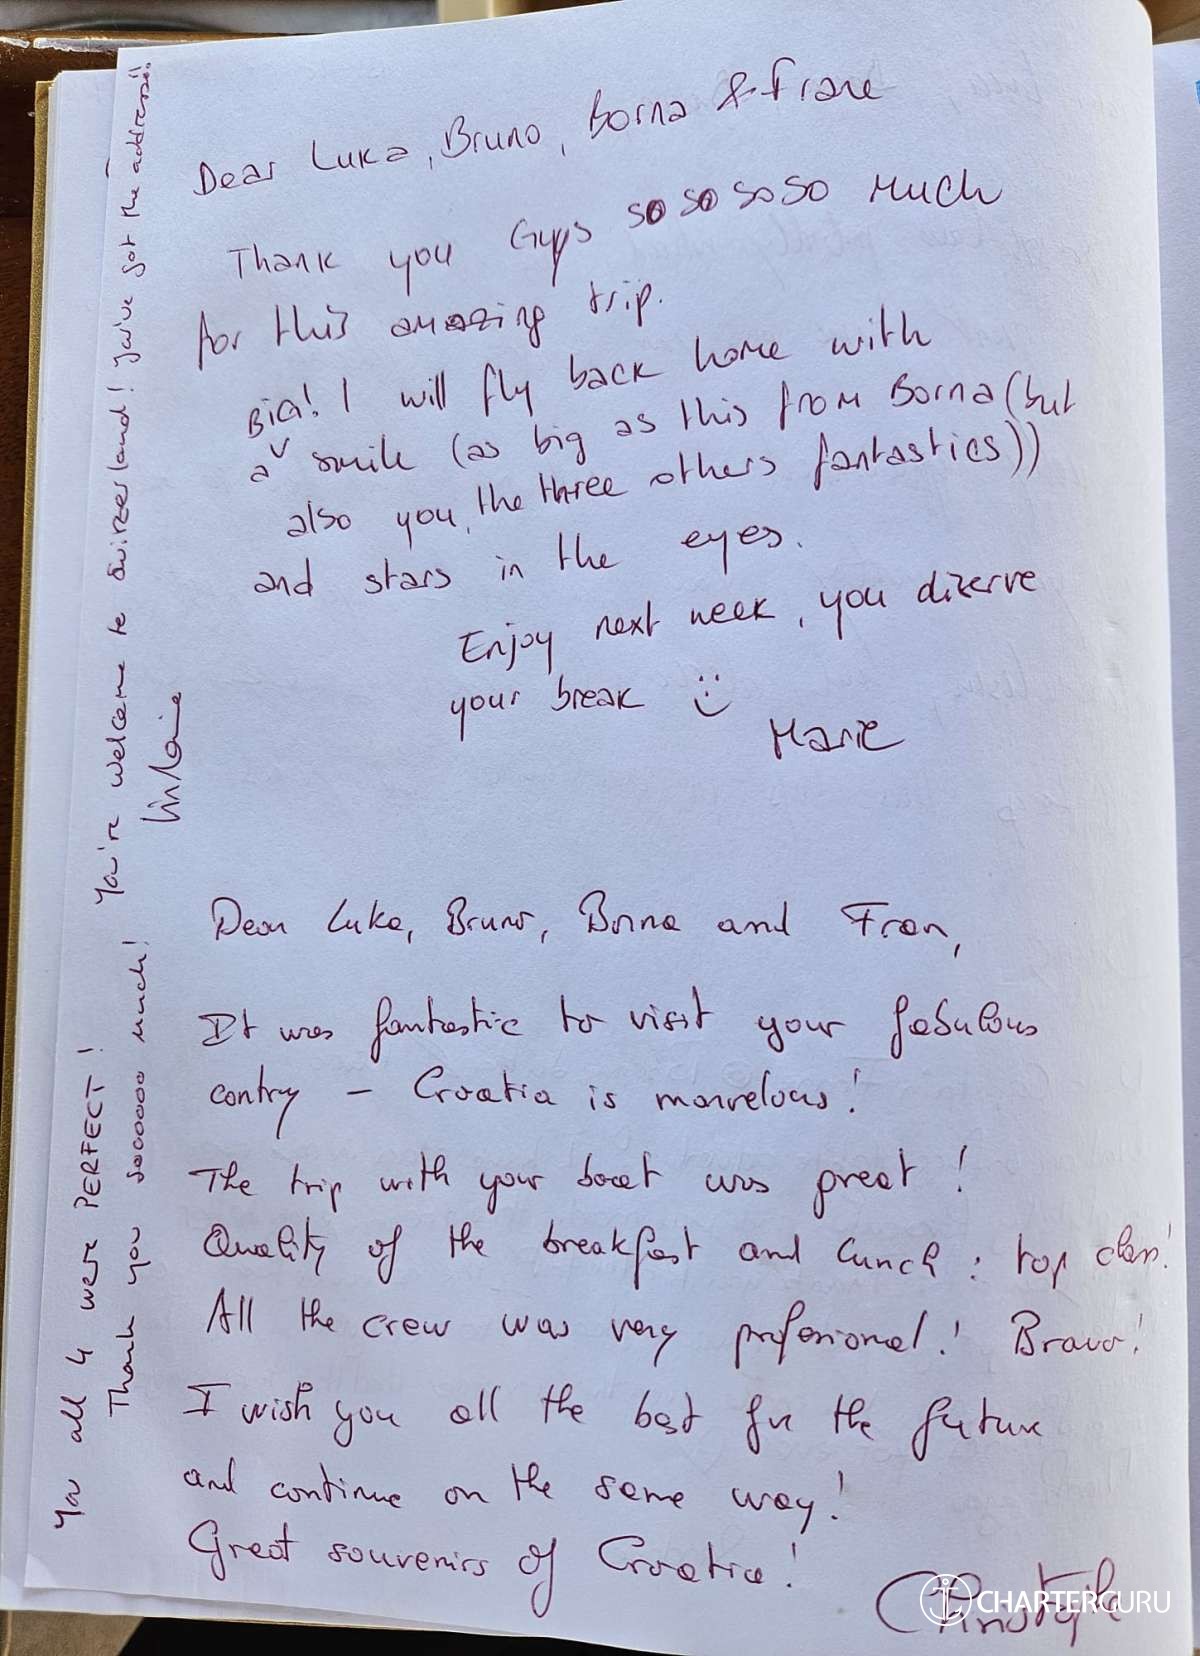 Dear Luka, Bruno, Borna & Frane
Thank you Guys so so so so Much
for this amazing trip.
BIG! I will fly back home with
a smile (as big as this from Borna (but
also you, the three others fantastics))
and stars in the eyes.
Enjoy next week, you dizerve
your break
Marie
Dear Luka, Bruno, Borna and Fran,
It was fantastic to visit your fabulous
contry - Croatia is marvelous!
The trip with your boat was great!
Quality of the breakfast and lunch : top class!
All the crew was very professional! Bravo!
I wish you all the best for the future
and continue on the same way!
Great souvenirs of Croatia!
You all 4 were PERFECT!
Thank you soooooo much!
You're welcome to Switzerland! You've got the address!!
CHARTERGURU